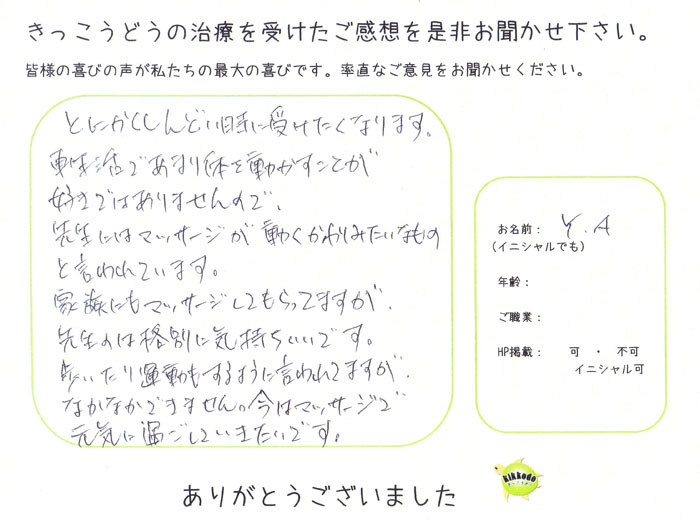 きっこうどうの治療を受けたご感想を是非お聞かせ下さい。
皆様の喜びの声が私たちの最大の喜びです。率直なご意見をお聞かせください。
とにかくしんどい時に受けたくなります。
車生活であまり体を動かすことが
好きではありませんので、
先生にはマッサージが動くかわりみたいなもの
と言われています。
家族にもマッサージしてもらってますが、
先生のは格別に気持ちいいです。
歩いたり運動もするように言われてますが、
なかなかできません。今はマッサージで
元気に過ごしていきたいです。
お名前: Y.A
(イニシャルでも)
年齢:
ご職業:
HP掲載: 可 ・ 不可
イニシャル可
kikkodo
ありがとうございました